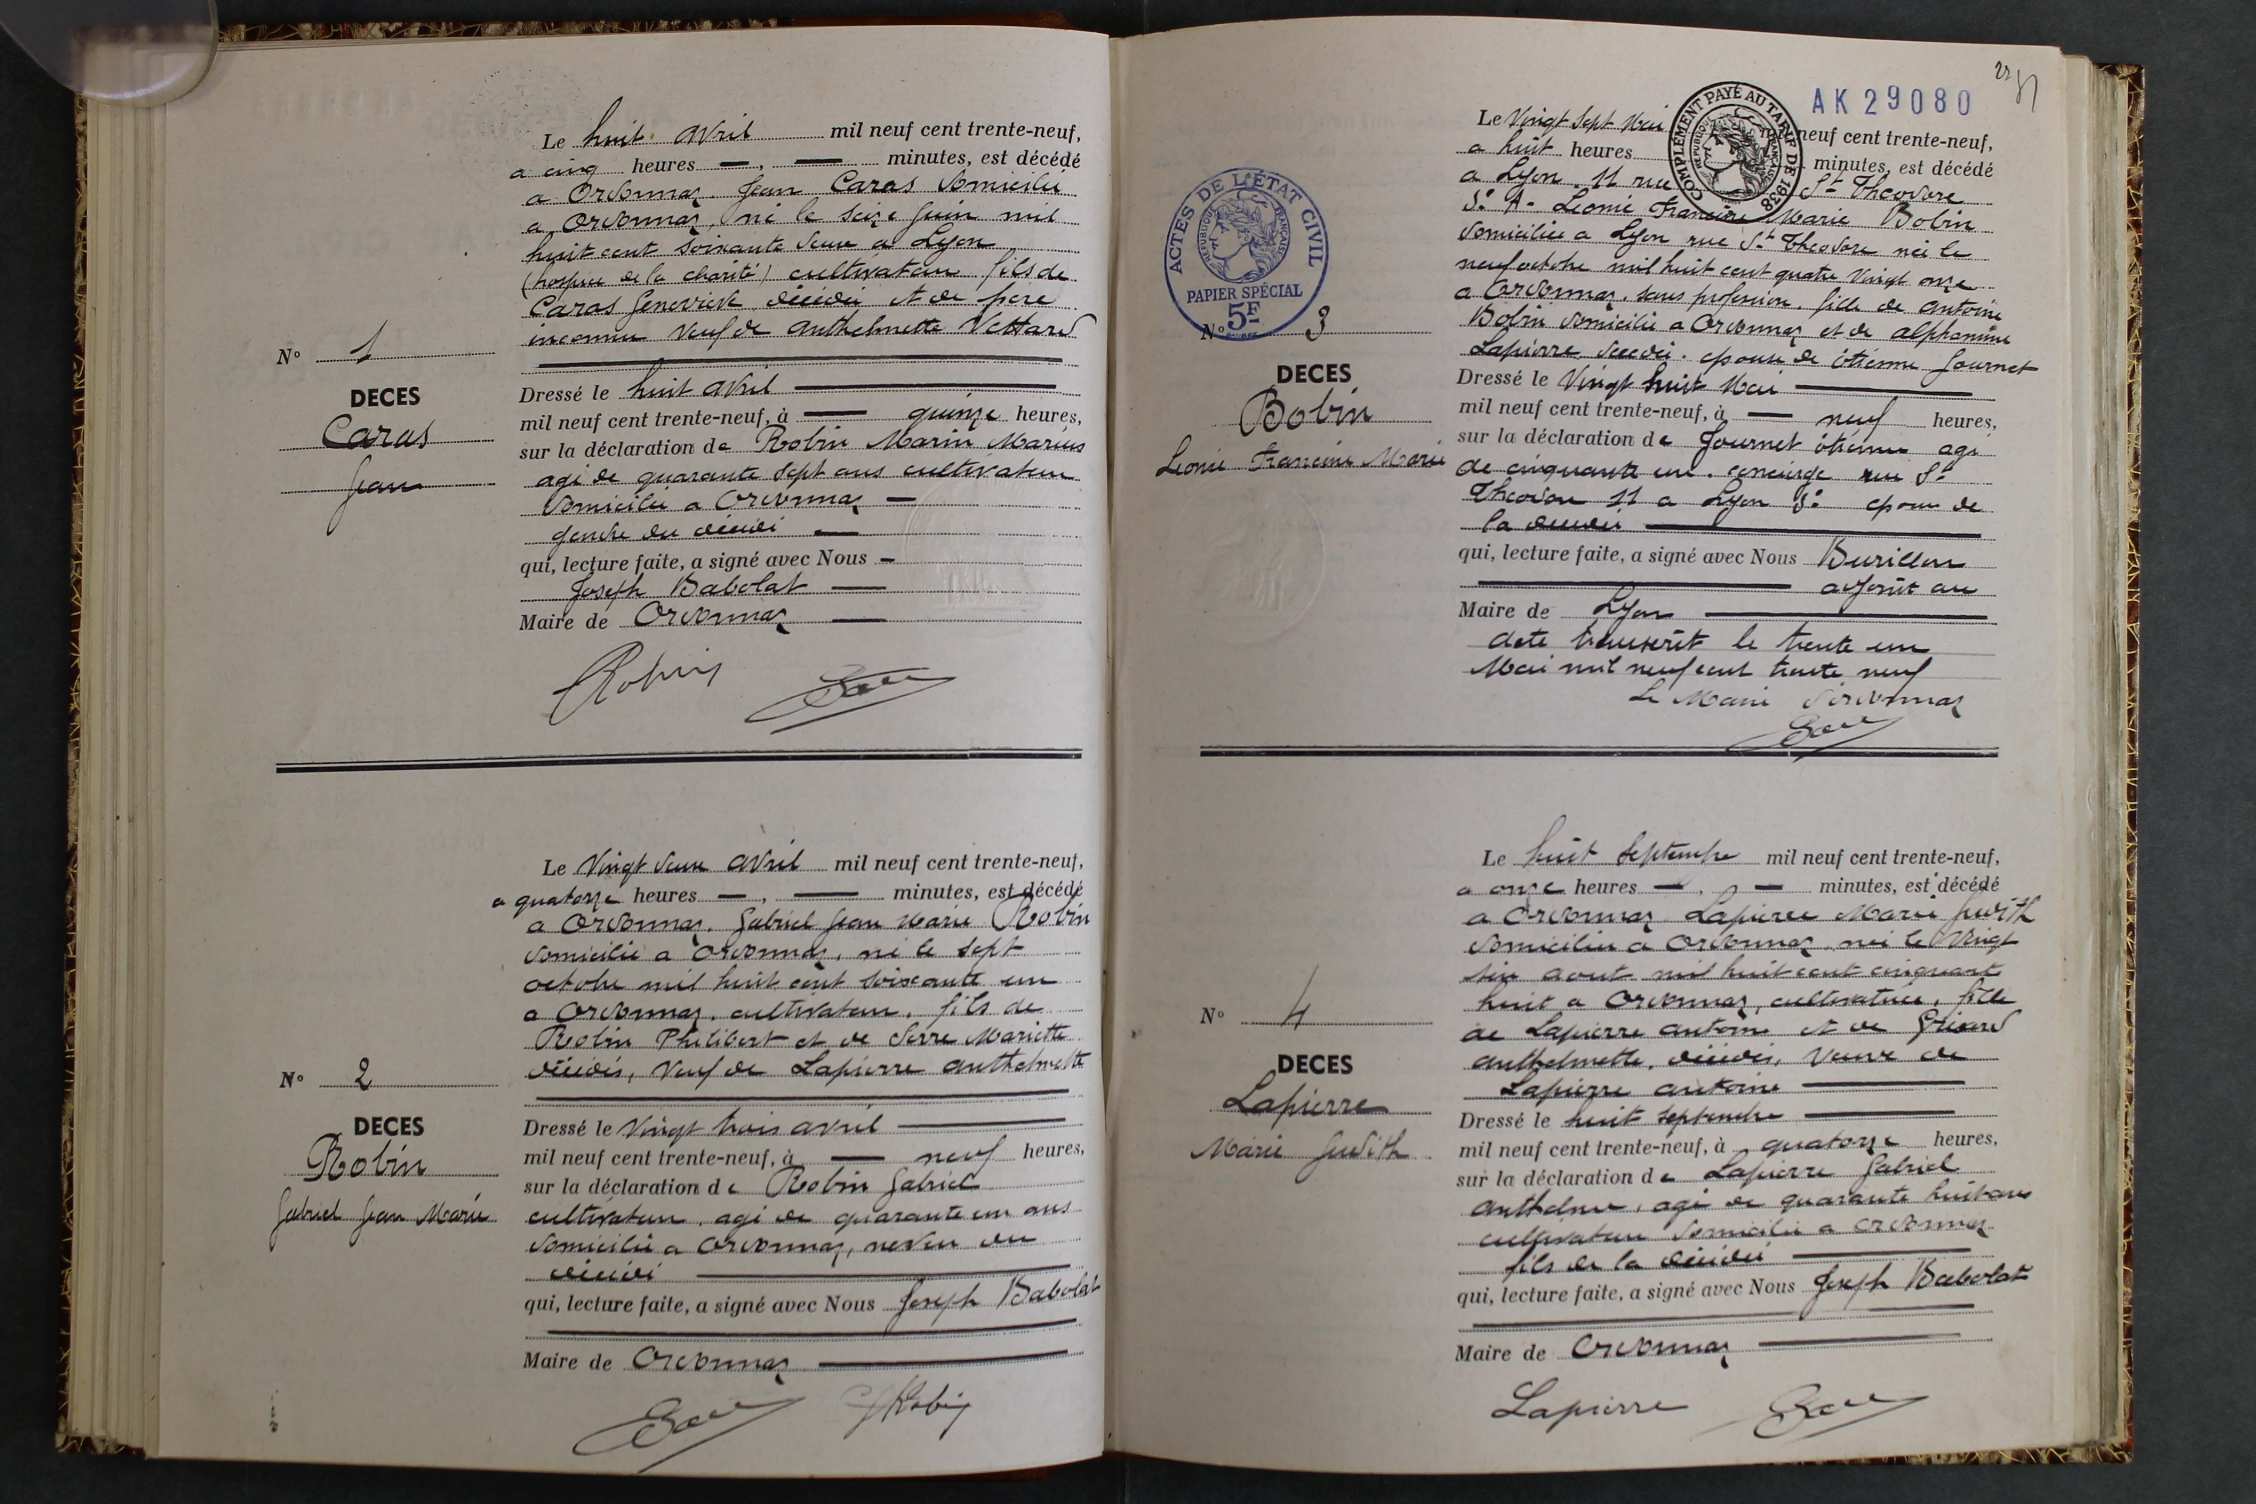 Le huit avril mil neuf cent trente-neuf,
a cinq heures — , — minutes, est décédé
a Ordonnaz. Jean Caras domicilié
a Ordonnaz, né le seize Juin mil
huit cent soixante deux a Lyon
(hospice de la charité) cultivateur fils de
Caras Genevieve décédée et de père
inconnu veuf de Anthelmette Vettard
N° 1
DECES
Caras
Jean
Dressé le huit avril
mil neuf cent trente-neuf, à — quinze heures,
sur la déclaration de Robin Marin Marius
agé de quarante sept ans cultivateur
domicilié a Ordonnaz —
gendre du décédé —
qui, lecture faite, a signé avec Nous —
Joseph Babolat —
Maire de Ordonnaz —
Robin
Le Vingt deux avril mil neuf cent trente-neuf,
a quatorze heures — , — minutes, est décédé
a Ordonnaz. Gabriel Jean Marie Robin
domicilié a Ordonnaz, né le sept
octobre mil huit cent soixante un
a Ordonnaz. cultivateur. fils de
Robin Philibert et de Serre Mariette
décédés, Veuf de Lapierre Anthelmette
N° 2
DECES
Robin
Gabriel Jean Marie
Dressé le Vingt trois avril
mil neuf cent trente-neuf, à — neuf heures,
sur la déclaration de Robin Gabriel
cultivateur, agé de quarante un ans
domicilié a Ordonnaz, neveu du
décédé
qui, lecture faite, a signé avec Nous Joseph Babolat
Maire de Ordonnaz
Robin
AK 29080
COMPLÉMENT PAYÉ AU TARIF DE 1938
RÉPUBLIQUE FRANÇAISE
Le Vingt sept Mai mil neuf cent trente-neuf,
a huit heures minutes, est décédé
a Lyon. 11 rue St Theodore
3e A. Leonie Francine Marie Bobin
domiciliée a Lyon rue St Theodore née le
neuf octobre mil huit cent quatre Vingt onze
a Ordonnaz. sans profession. fille de Antoine
Bobin domicilié a Ordonnaz et de Alphonsine
Lapierre décédée. epouse de Etienne Journet
ACTES DE L'ÉTAT CIVIL
RÉPUBLIQUE FRANÇAISE
PAPIER SPÉCIAL
5F
N° 3
DECES
Bobin
Leonie Francine Marie
Dressé le Vingt huit Mai
mil neuf cent trente-neuf, à — neuf heures,
sur la déclaration de Journet étienne agé
de cinquante un. concierge rue St
Theodore 11 a Lyon 3e epoux de
la décédée
qui, lecture faite, a signé avec Nous Burillon
adjoint au
Maire de Lyon
Acte transcrit le trente un
Mai mil neuf cent trente neuf
Le Maire d'Ordonnaz
Le huit septembre mil neuf cent trente-neuf,
a onze heures — , — minutes, est décédé
a Ordonnaz Lapierre Marie Judith
domiciliée a Ordonnaz née le Vingt
six aout mil huit cent cinquante
huit a Ordonnaz, cultivatrice. fille
de Lapierre Antoine et de Gricard
Anthelmette, décédés, Veuve de
Lapierre Antoine
N° 4
DECES
Lapierre
Marie Judith
Dressé le huit septembre
mil neuf cent trente-neuf, à quatorze heures,
sur la déclaration de Lapierre Gabriel
Anthelme, agé de quarante huit ans
cultivateur domicilié a Ordonnaz
fils de la décédée
qui, lecture faite, a signé avec Nous Joseph Babolat
Maire de Ordonnaz
Lapierre